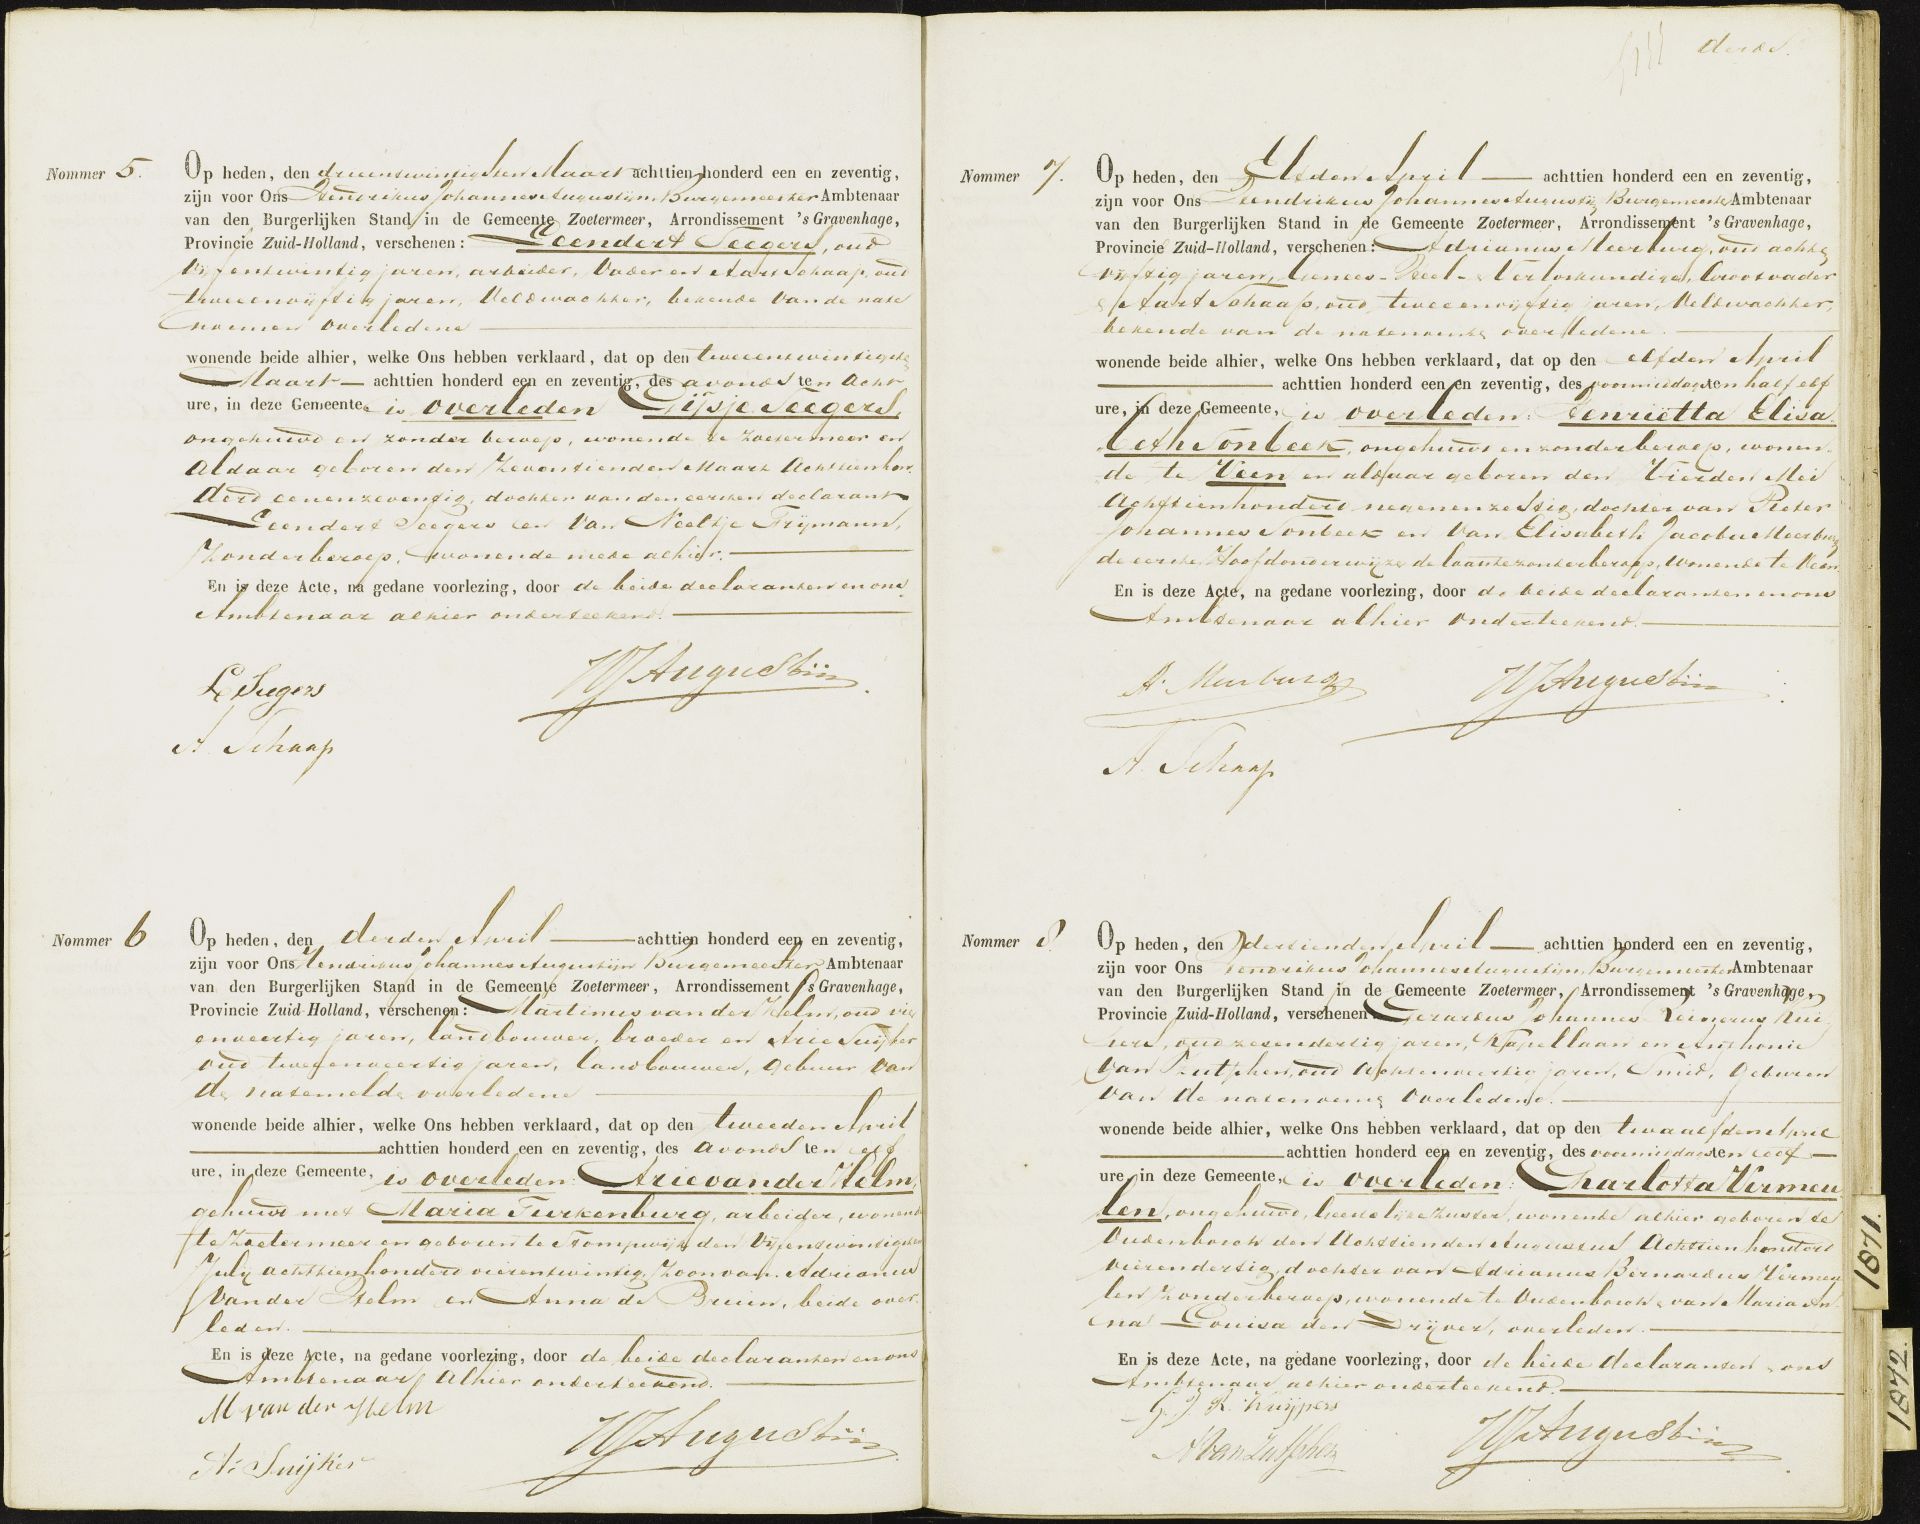 Nommer 5.
Op heden, den drieentwintigsten Maart achttien honderd een en zeventig,
zijn voor Ons Hendrikus Johannes Augustijn, Burgemeester Ambtenaar
van den Burgerlijken Stand in de Gemeente Zoetermeer, Arrondissement 's Gravenhage,
Provincie Zuid-Holland, verschenen: Leendert Seegers, oud
vijfentwintig jaren, arbeider, Vader en Aart Schaap, oud
tweeenvijftig jaren, Veldwachter, bekende van de nate
noemen overledene
wonende beide alhier, welke Ons hebben verklaard, dat op den tweeentwintigste
Maart achttien honderd een en zeventig, des avonds ten acht
ure, in deze Gemeente, is overleden Gijsje Seegers,
ongehuwd en zonder beroep, wonende te Zoetermeer en
aldaar geboren den Zeventienden Maart Achttienhon
derd eenenzeventig, dochter van den eersten declarant
Leendert Seegers en van Neeltje Frijmann,
zonder beroep, wonende mede alhier.
En is deze Acte, na gedane voorlezing, door de beide declaranten en ons
Ambtenaar alhier onderteekend.
L Seegers
HJAugustijn
A. Schaap
Nommer 6
Op heden, den derden April achttien honderd een en zeventig,
zijn voor Ons Hendrikus Johannes Augustijn Burgemeester Ambtenaar
van den Burgerlijken Stand in de Gemeente Zoetermeer, Arrondissement 's Gravenhage,
Provincie Zuid-Holland, verschenen: Martinus van der Helm, oud vier
enveertig jaren, landbouwer, broeder en Arie Suijker
oud tweeenveertig jaren, landbouwer, gebuur van
de natemelde overledene
wonende beide alhier, welke Ons hebben verklaard, dat op den tweeden April
achttien honderd een en zeventig, des avonds ten elf
ure, in deze Gemeente, is overleden: Arie van der Helm,
gehuwd met Maria Turkenburg, arbeider, wonende
te Zoetermeer en geboren te Stompwijk den Vijfentwintigsten
July achttienhonderd vierentwintig, Zoon van Adrianus
van der Helm en Anna de Bruin, beide over
leden.
En is deze Acte, na gedane voorlezing, door de beide declaranten en ons
Ambtenaar alhier onderteekend.
M van der Helm
HJAugustijn
A: Suijker
derde
Nommer 7.
Op heden, den Elfden April achttien honderd een en zeventig,
zijn voor Ons Hendrikus Johannes Augustijn Burgemeester Ambtenaar
van den Burgerlijken Stand in de Gemeente Zoetermeer, Arrondissement 's Gravenhage,
Provincie Zuid-Holland, verschenen: Adrianus Meerburg, oud acht &
vijftig jaren, Genees- Heel- & Verloskundige, Grootvader
& Aart Schaap, oud tweeenvijftig jaren, Veldwachter,
bekende van de natenoemen overledene.
wonende beide alhier, welke Ons hebben verklaard, dat op den elfden April
achttien honderd een en zeventig, des voormiddags ten half elf
ure, in deze Gemeente, is overleden: Henriëtta Elisa
beth Sonbeek, ongehuwd en zonder beroep, wonen
de te Veen en aldaar geboren den Vierden Mei
Achttienhonderd negenenzestig, dochter van Pieter
Johannes Sonbeek en van Elisabeth Jacoba Meerburg
de eerste Hoofdonderwijzer de laatste zonder beroep, wonende te Veen
En is deze Acte, na gedane voorlezing, door de beide declaranten en ons
Ambtenaar alhier onderteekend.
A. Meerburg
HJAugustijn
A. Schaap
Nommer 8.
Op heden, den dertienden April achttien honderd een en zeventig,
zijn voor Ons Hendrikus Johannes Augustijn, Burgemeester Ambtenaar
van den Burgerlijken Stand in de Gemeente Zoetermeer, Arrondissement 's Gravenhage,
Provincie Zuid-Holland, verschenen: Gerardus Johannes Kuij
pers, oud zesendertig jaren, Kapellaan en Anthonie
van Zutphen, oud achtenveertig jaren, Smid, geburen
van de natenoemen overledene.
wonende beide alhier, welke Ons hebben verklaard, dat op den twaalfden April
achttien honderd een en zeventig, des voormiddags ten elf
ure, in deze Gemeente, is overleden: Charlotta Vermeu
len, ongehuwd, Geestelijke Zuster, wonende alhier geboren te
Oudenbosch den Achttienden Augustus Achttienhonderd
vierendertig, dochter van Adrianus Bernardus Vermeu
len zonder beroep, wonende te Oudenbosch & van Maria An
na Louisa den Drijver, overleden.
En is deze Acte, na gedane voorlezing, door de beide declaranten & ons
Ambtenaar alhier onderteekend.
G. J. R. Kuijpers
HJAugustijn
A van Zutphen
1871.
1872.